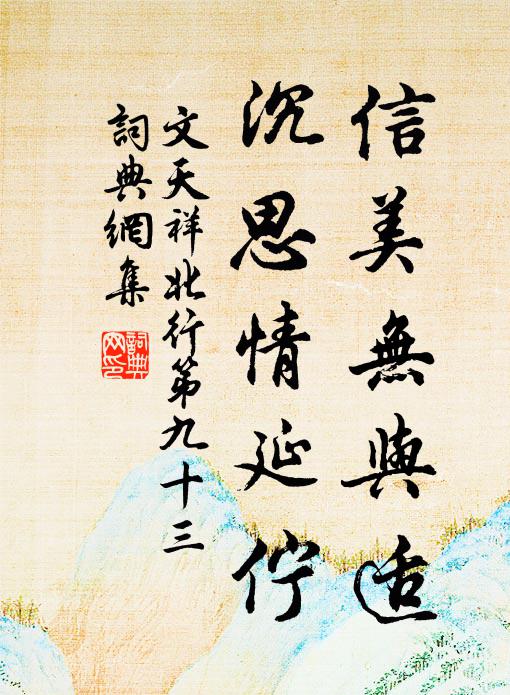 信美無與適
沉思情延佇
文天祥北行第九十三
詞典網集
詞典
网印